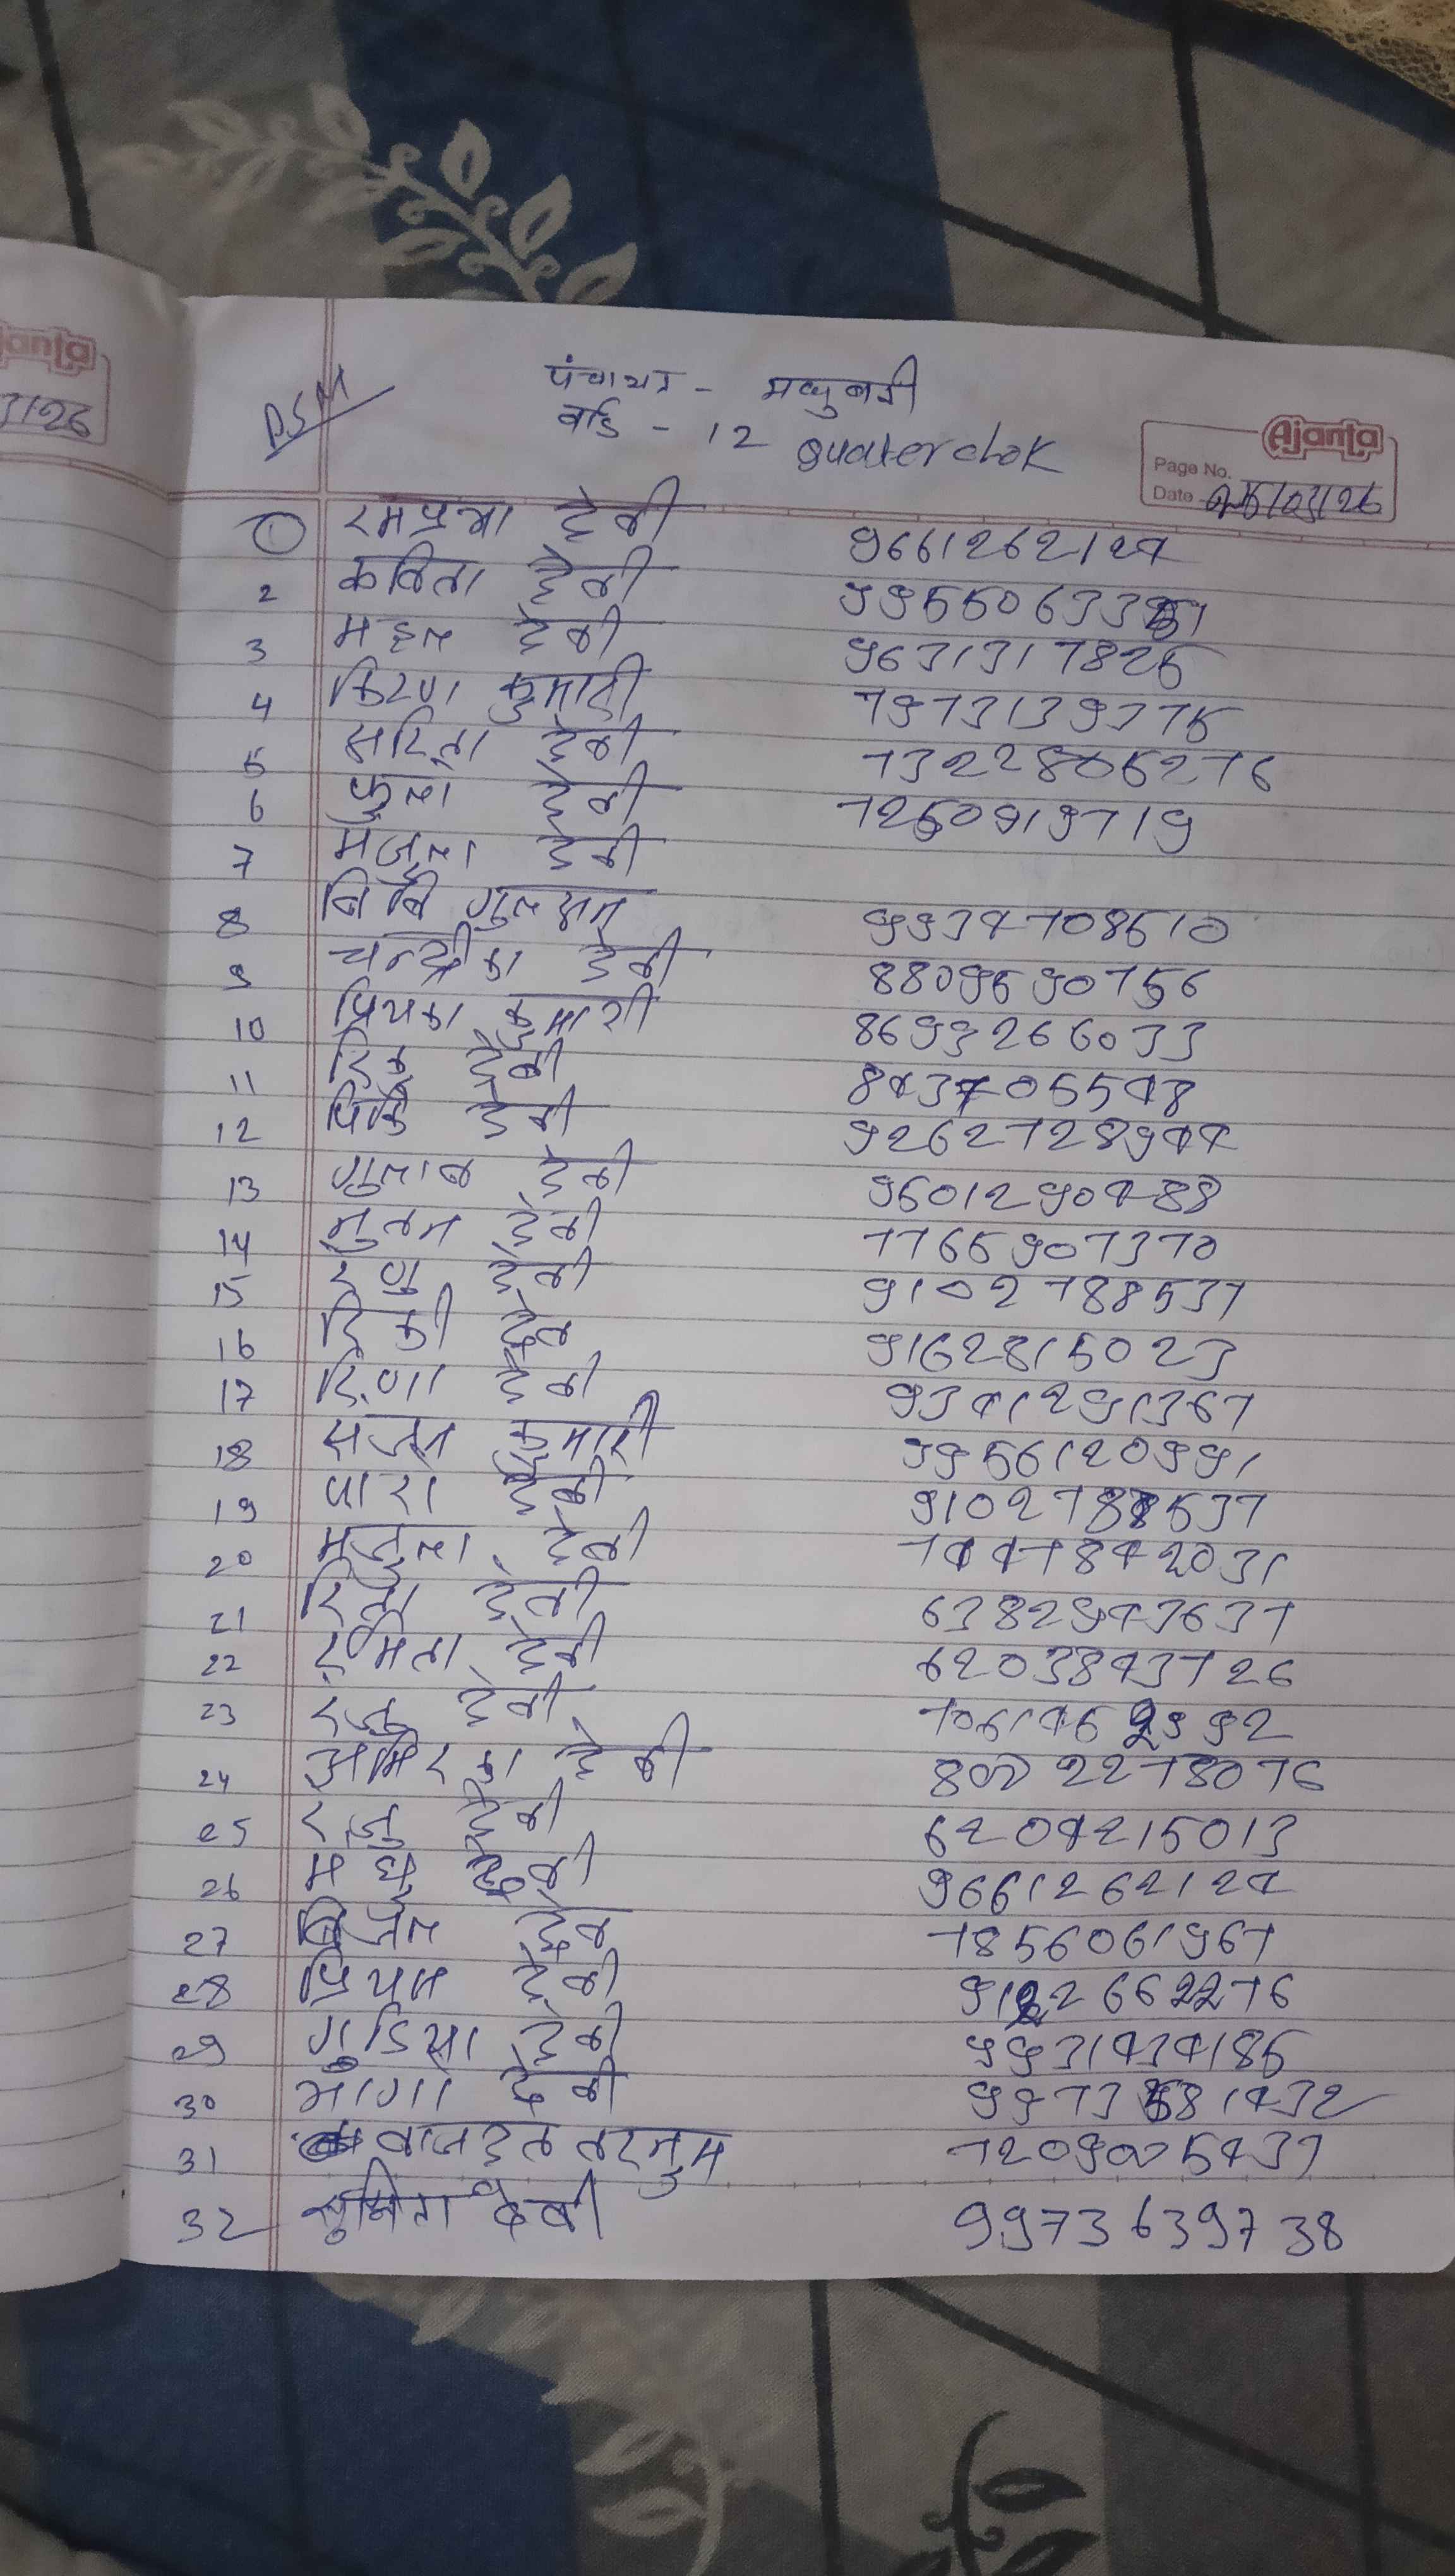 anta
3/26
D.S.M
पंचायत - मधुबनी
वार्ड - 12 quaterchok
Ajanta
Page No.
Date 25/03/26
1 रमप्रभा देवी 9661262124
2 कबिता देवी
3 देवी 9631317825
4 किरण कुमारी 7973139375
5 सरिता देवी 7322805276
6 फुला देवी 7250919719
7 मंजुला देवी
8 बिबि गुलशन 9934708510
9 चन्द्रीका देवी 8809590756
10 प्रियका कुमारी 8693266033
11 रिंकु देवी 8434705548
12 पिंकि देवी 9262728944
13 गुलाब देवी 9501290488
14 नुतन देवी 7765907370
15 रेणु देवी 9102788537
16 रिंकी देव 9162815023
17 रिणा देवी 9341291367
18 कुमारी 9956120991
19 पारो देवी 9102788537
20 मंजुला देवी 7447842031
21 रिता देवी 6382943637
22 देवी 6203843726
23 रंजु देवी
24 अमिरका देवी
25 रंजु देवी 6204215013
26 मधु देवी 9661262124
27 देव 7856061967
28 प्रियम देवी
29 गुडिया देवी 9931434185
30 भागो देवी
31 तरनुम
32 सुनिता देवी 9973639738